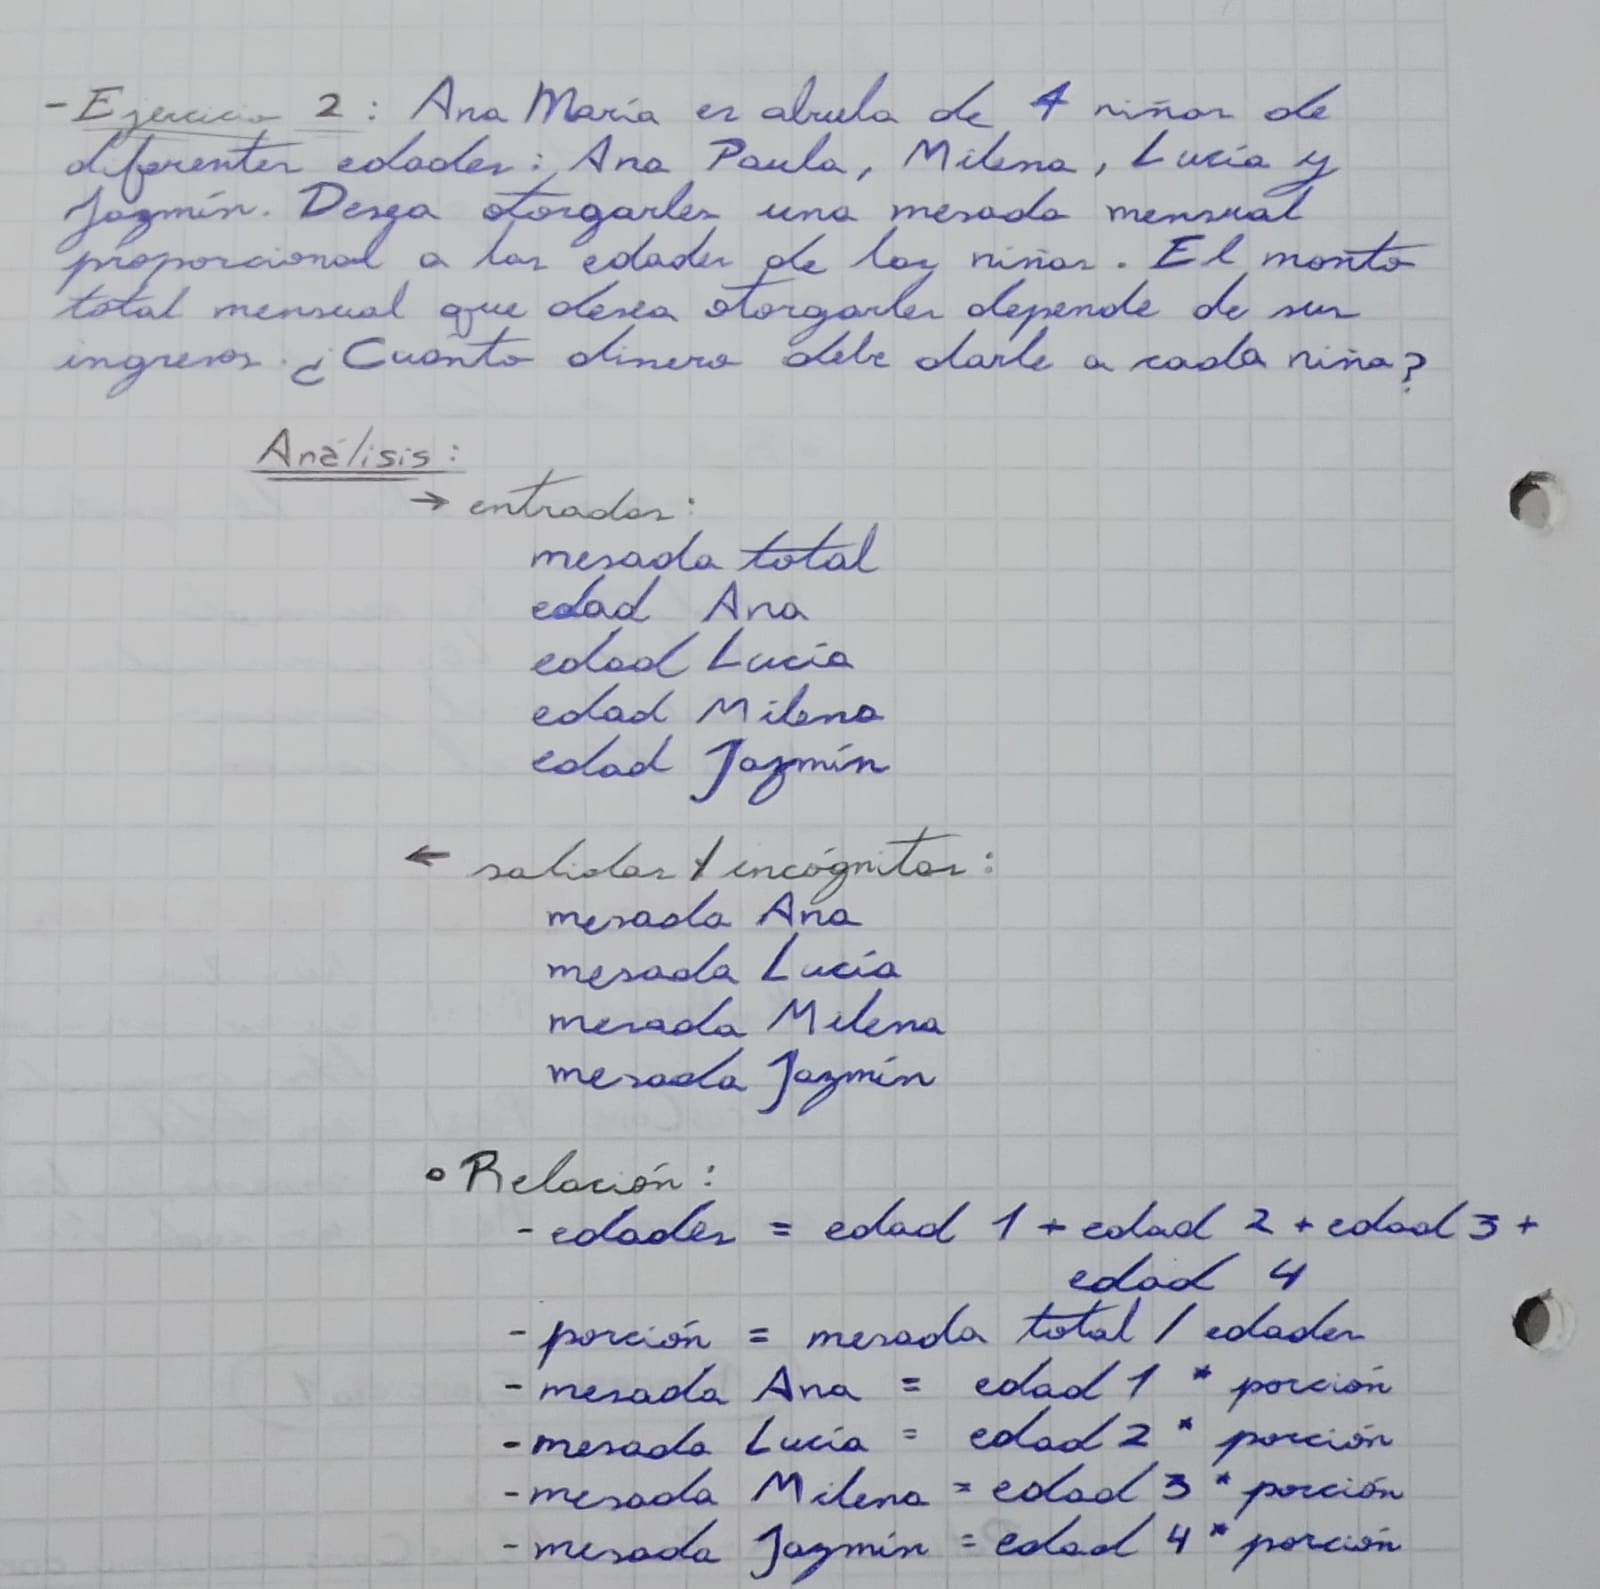 - Ejercicio 2: Ana María es abuela de 4 niñas de
diferentes edades: Ana Paula, Milena, Lucía y
Jazmín. Desea otorgarles una mesada mensual
proporcional a las edades de las niñas. El monto
total mensual que desea otorgarles depende de sus
ingresos. ¿Cuánto dinero debe darle a cada niña?
Análisis:
→ entradas:
mesada total
edad Ana
edad Lucía
edad Milena
edad Jazmín
← salidas / incógnitas:
mesada Ana
mesada Lucía
mesada Milena
mesada Jazmín
• Relación:
- edades = edad 1 + edad 2 + edad 3 +
edad 4
- porción = mesada total / edades
- mesada Ana = edad 1 * porción
- mesada Lucía = edad 2 * porción
- mesada Milena = edad 3 * porción
- mesada Jazmín = edad 4 * porción